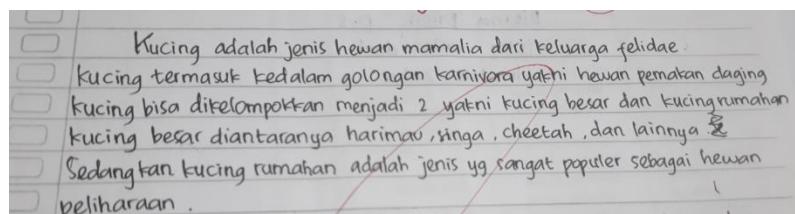 Kucing adalah jenis hewan mamalia dari keluarga felidae.
kucing termasuk kedalam golongan karnivora yakni hewan pemakan daging
kucing bisa dikelompokkan menjadi 2 yakni kucing besar dan kucing rumahan
kucing besar diantaranya harimau, singa, cheetah, dan lainnya
Sedangkan kucing rumahan adalah jenis yg sangat populer sebagai hewan
peliharaan.